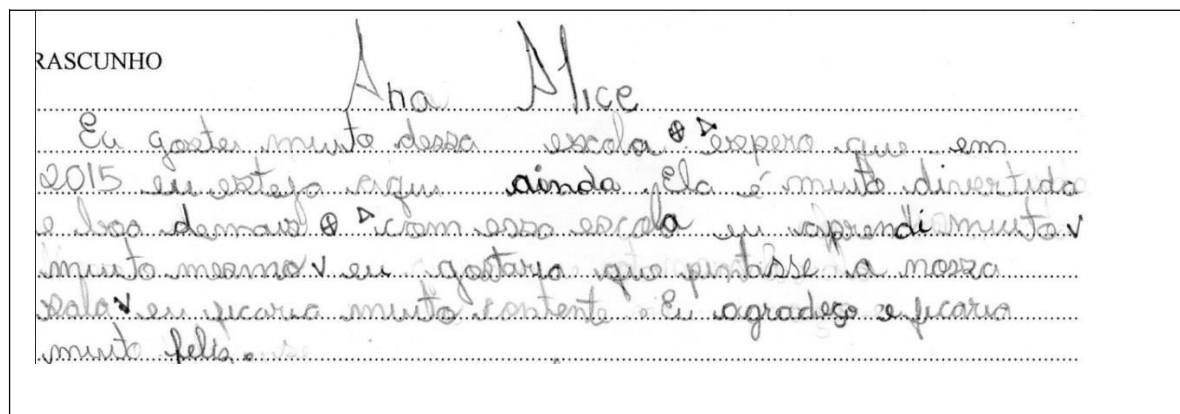 RASCUNHO
Ana Alice
Eu gostei muito dessa escola ⊕ △ espero que em
2015 eu esteja aqui ainda. Ela é muito divertida
e boa demais ⊗ △ com essa escola eu aprendi muito v
muito mesmo v eu gostaria que pintasse a nossa
sala v eu ficaria muito contente. Eu agradeço e ficaria
muito felis.